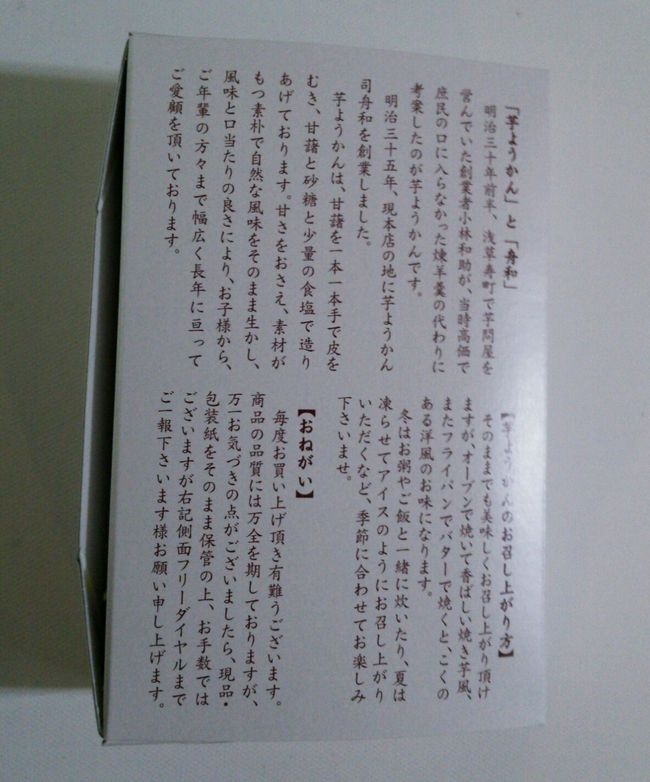 「芋ようかん」と「舟和」
明治三十年前半、浅草寿町で芋問屋を
営んでいた創業者小林和助が、当時高価で
庶民の口に入らなかった煉羊羹の代わりに
考案したのが芋ようかんです。
明治三十五年、現本店の地に芋ようかん
司舟和を創業しました。
芋ようかんは、甘藷を一本一本手で皮を
むき、甘藷と砂糖と少量の食塩で造り
あげております。甘さをおさえ、素材が
もつ素朴で自然な風味をそのまま生かし、
風味と口当たりの良さにより、お子様から、
ご年輩の方々まで幅広く長年に亘って
ご愛顧を頂いております。
【芋ようかんのお召し上がり方】
そのままでも美味しくお召し上がり頂け
ますが、オーブンで焼いて香ばしい焼き芋風、
またフライパンでバターで焼くと、こくの
ある洋風のお味になります。
冬はお粥やご飯と一緒に炊いたり、夏は
凍らせてアイスのようにお召し上がり
いただくなど、季節に合わせてお楽しみ
下さいませ。
【おねがい】
毎度お買い上げ頂き有難うございます。
商品の品質には万全を期しておりますが、
万一お気づきの点がございましたら、現品・
包装紙をそのまま保管の上、お手数では
ございますが右記側面フリーダイヤルまで
ご一報下さいます様お願い申し上げます。